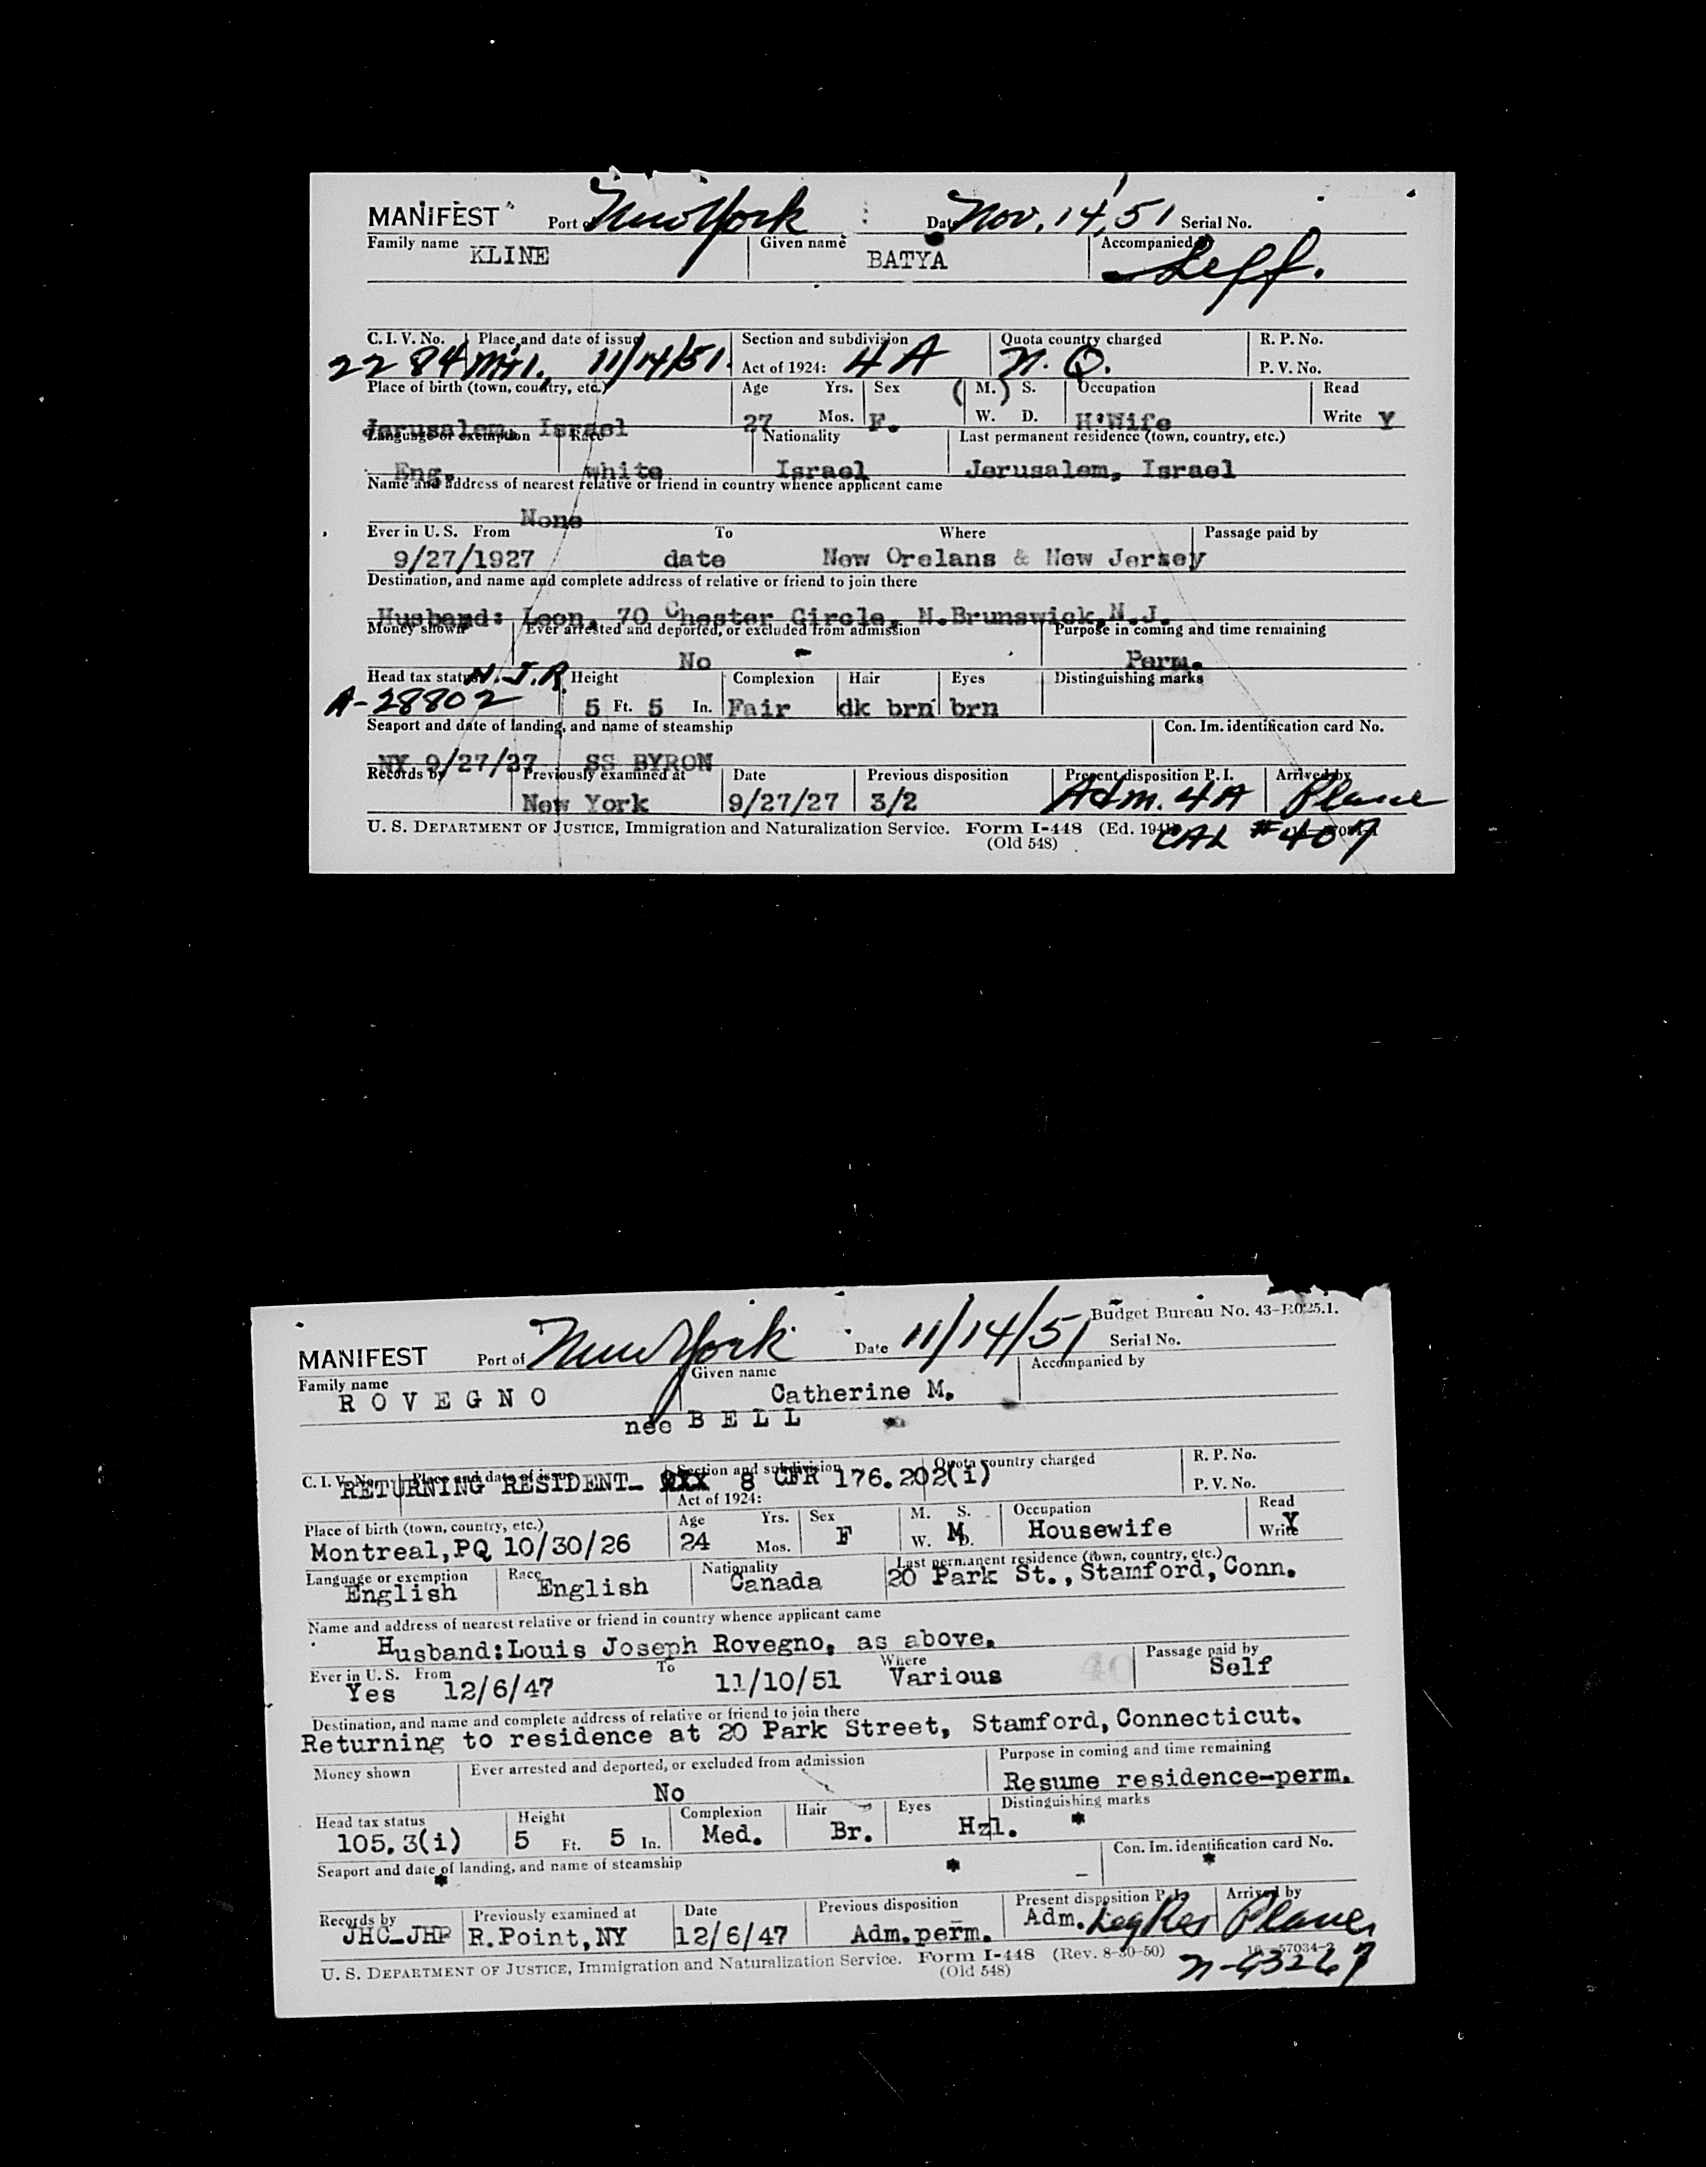 MANIFEST Port of New York Date Nov. 14, 51 Serial No.
Family name KLINE Given name BATYA Accompanied by Self.
C. I. V. No. Place and date of issue Section and subdivision Quota country charged R. P. No.
2284 Mtl. 11/14/51. Act of 1924: 4A N. Q. P. V. No.
Place of birth (town, country, etc.) Age Yrs. Sex (M.) S. Occupation Read
Jerusalem, Israel 27 Mos. F. W. D. H'Wife Write Y
Language or exemption Race Nationality Last permanent residence (town, country, etc.)
Eng. white Israel Jerusalem, Israel
Name and address of nearest relative or friend in country whence applicant came
None
Ever in U. S. From To Where Passage paid by
9/27/1927 date New Orelans & New Jersey
Destination, and name and complete address of relative or friend to join there
Husband: Leon, 70 Chester Circle, N.Brunswick,N.J.
Money shown Ever arrested and deported, or excluded from admission Purpose in coming and time remaining
No Perm.
Head tax status N.J.R. Height Complexion Hair Eyes Distinguishing marks
A-28802 5 Ft. 5 In. Fair dk brn brn
Seaport and date of landing, and name of steamship Con. Im. identification card No.
NY 9/27/27 SS BYRON
Records by Previously examined at Date Previous disposition Present disposition P. I. Arrived by
New York 9/27/27 3/2 Adm. 4A Plane
U. S. DEPARTMENT OF JUSTICE, Immigration and Naturalization Service. Form I-448 (Ed. 1941) CAL #407
(Old 548)
Budget Bureau No. 43-R025.1.
MANIFEST Port of New York Date 11/14/51 Serial No.
Family name Given name Accompanied by
ROVEGNO Catherine M.
nee BELL
C. I. V. No. Place and date of issue Section and subdivision Quota country charged R. P. No.
RETURNING RESIDENT- XXX 8 CFR 176.202(i)
Act of 1924: P. V. No.
Place of birth (town, country, etc.) Age Yrs. Sex M. S. Occupation Read
Montreal,PQ 10/30/26 24 Mos. F W. M D. Housewife Write Y
Language or exemption Race Nationality Last permanent residence (town, country, etc.)
English English Canada 20 Park St.,Stamford,Conn.
Name and address of nearest relative or friend in country whence applicant came
Husband:Louis Joseph Rovegno, as above.
Ever in U. S. From To Where Passage paid by
Yes 12/6/47 11/10/51 Various Self
Destination, and name and complete address of relative or friend to join there
Returning to residence at 20 Park Street, Stamford,Connecticut.
Money shown Ever arrested and deported, or excluded from admission Purpose in coming and time remaining
No Resume residence-perm.
Head tax status Height Complexion Hair Eyes Distinguishing marks
105.3(i) 5 Ft. 5 In. Med. Br. Hzl. *
Seaport and date of landing, and name of steamship Con. Im. identification card No.
* * - *
Records by Previously examined at Date Previous disposition Present disposition P. I. Arrived by
JHC-JHP R.Point,NY 12/6/47 Adm.perm. Adm. Leg Res Plane
U. S. DEPARTMENT OF JUSTICE, Immigration and Naturalization Service. Form I-448 (Rev. 8-30-50) 16-57034-2
(Old 548) N-93267